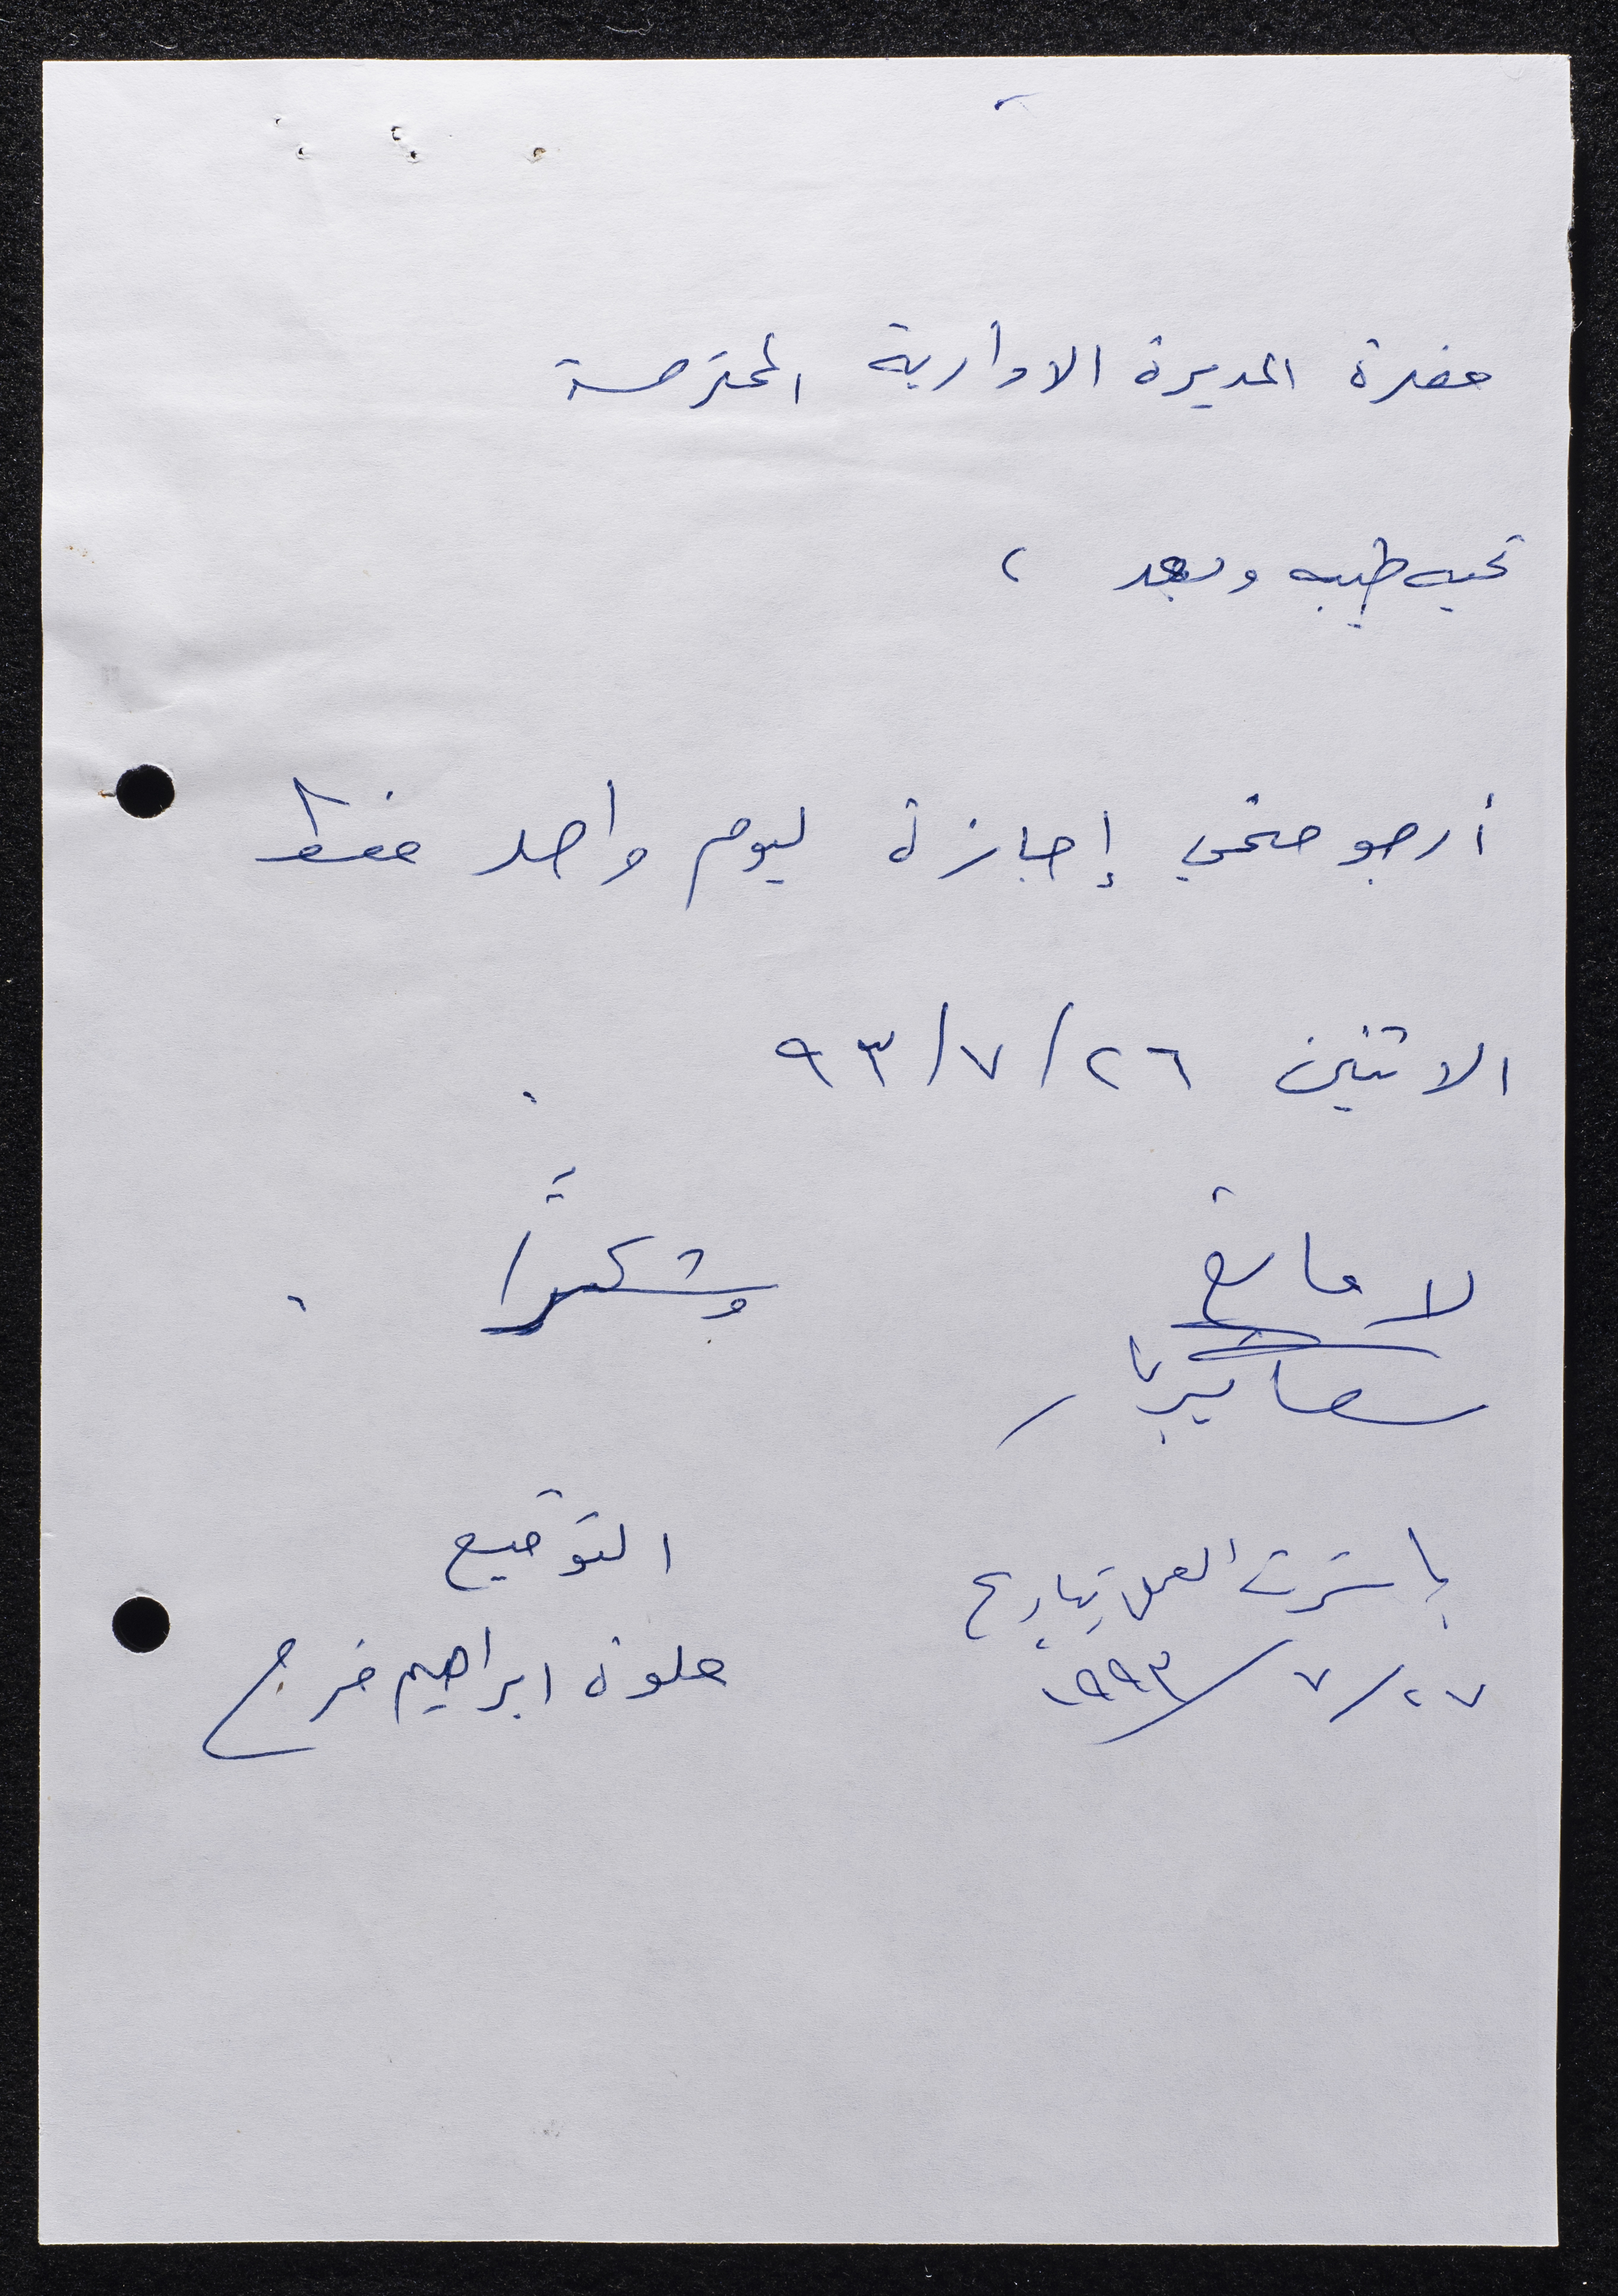 حضرة المديرة الادارية المحترمة
تحيه طيبه وبعد ،
أرجو منحي إجازة ليوم واحد فقط
الاثنين ٢٦/٧/٩٣ .
وشكراً .
لا مانع
التوقيع
باشرت العمل بتاريخ
٢٧/٧/١٩٩٣
ابراهيم فرج